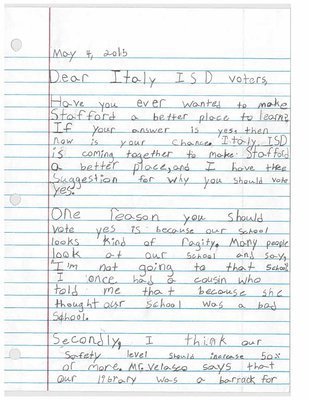 May 7, 2015
Dear Italy ISD voters,
Have you ever wanted to make
Stafford a better place to learn?
If your answer is yes. then
now is your chance. Italy ISD
is coming together to make Stafford
a better place, and I have
suggestion for why you should vote
yes.
One reason you should
vote yes is because our school
looks kind of ragity. Many people
look at our school and say,
"I'm not going to that school
I once had a cousin who
told me that because she
thought our school was a bad
school.
Secondly, I think our
safety level should increase 50%
or more. Velasco says that
our library was a barrack for